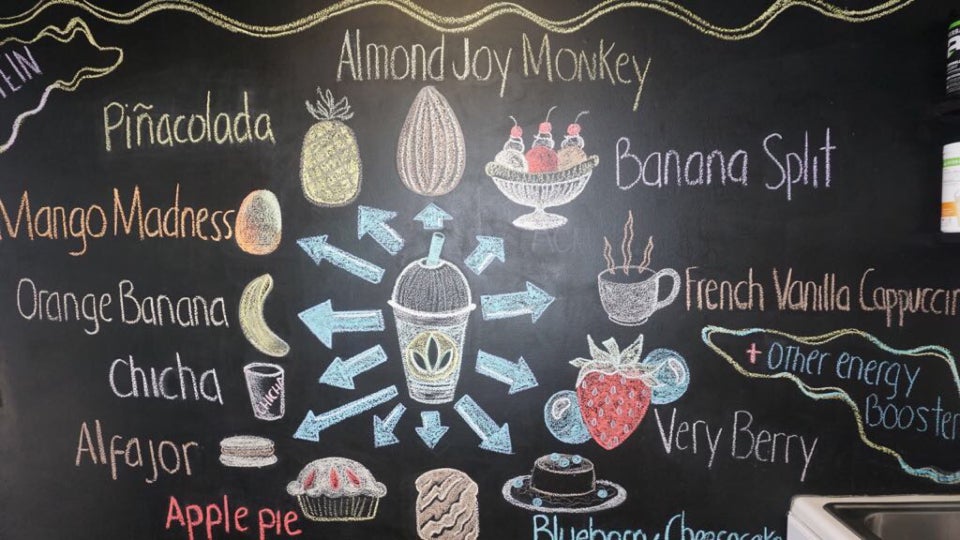 Almond Joy Monkey
Piñacolada
Banana Split
Mango Madness
French Vanilla Cappuccin
Orange Banana
+ Other energy
Booster
Chicha
CHICHA
Alfajor
Very Berry
Apple pie
Blueberry Cheesecake